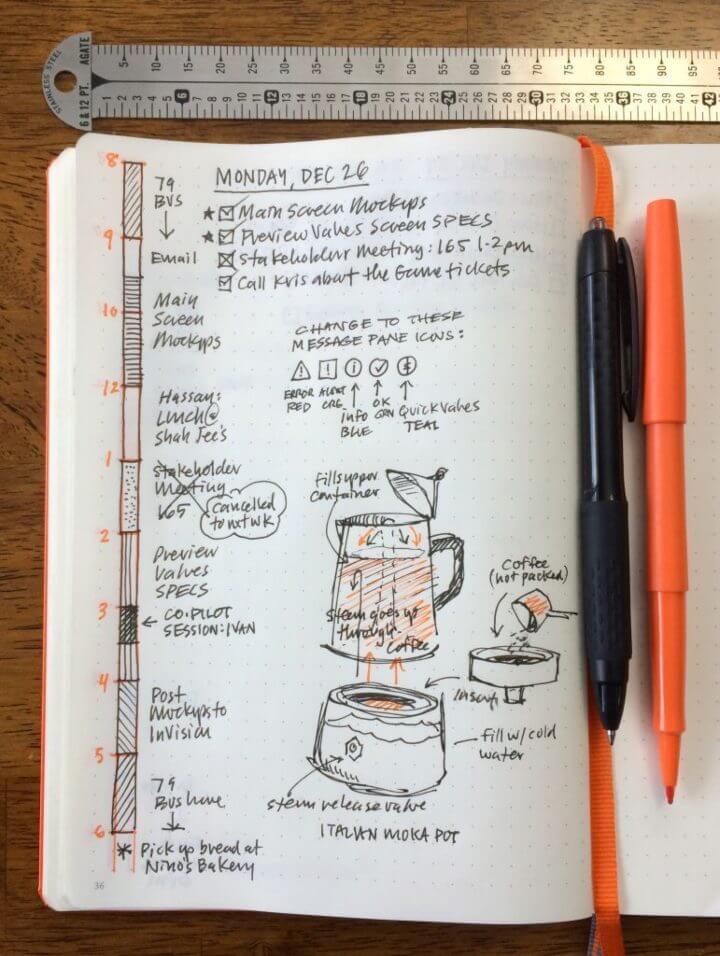 STAINLESS STEEL
6 & 12 PT. AGATE
5 10 15 20 25 30 35 40 45 50 55 60 65 70 75 80 85 90 95
6 12 18 24 30 36 42
MONDAY, DEC 26
★ Main Screen Mockups
★ Preview Values Screen SPECS
Stakeholder Meeting: 165 1-2pm
Call Kris about the Game tickets
8
79
BUS
9
Email
10
Main
Screen
Mockups
12
Hassan:
Lunch @
Shah Jee's
1
Stakeholder
Meeting
165
cancelled
to nxt wk
2
Preview
Values
SPECS
3
CO-PILOT
SESSION: IVAN
4
Post
Mockups to
InVision
5
79
Bus home
6
* Pick up bread at
Nino's Bakery
36
CHANGE TO THESE
MESSAGE PANE ICONS:
! ! i
ERROR
RED
ALERT
ORG
info
BLUE
OK
GRN
Quick Values
TEAL
Fills upper
container
Steam goes up
through
coffee
Coffee
(not packed)
insert
fill w/ cold
water
steam release valve
ITALIAN MOKA POT